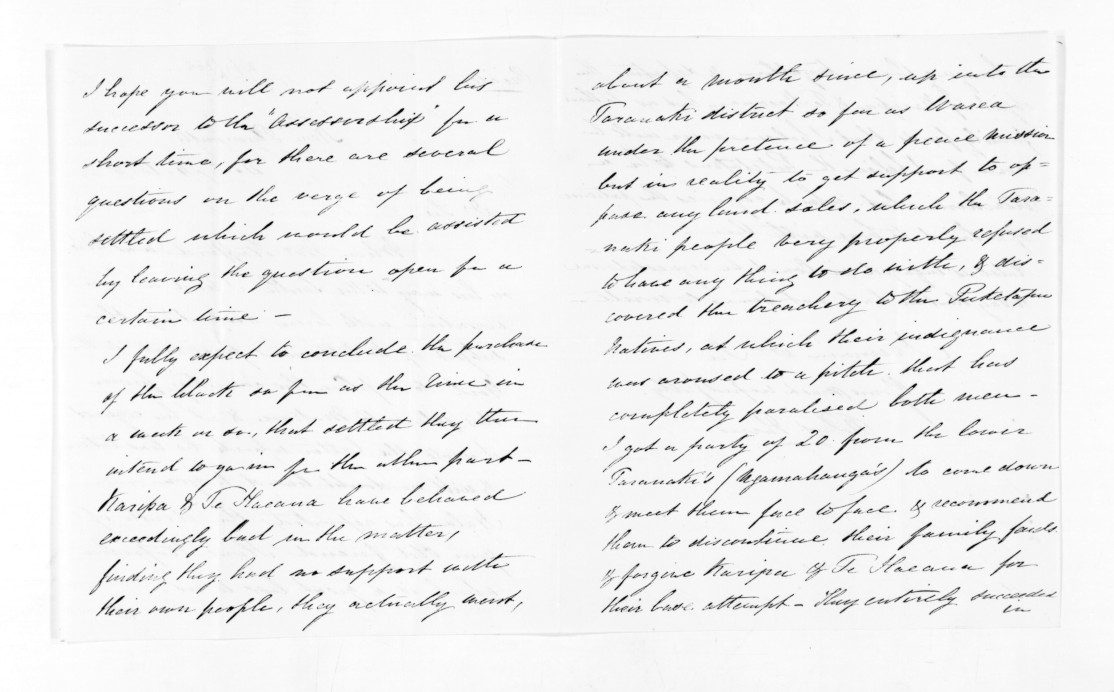 I hope you will not appoint his
successor to the "Assessorship" for a
short time, for there are several
questions on the verge of being
settled which would be assisted
by leaving the question open for a
certain time -
I fully expect to conclude the purchase
of the block so far as the Time in
a week or so. that settled they then
intend to go in for the other part -
Karipa & Te Haeana have behaved
exceedingly bad in the matter,
finding they had no support with
their own people, they actually went,
about a month since, up into the
Taranaki district so far as Warea
under the pretence of a peace mission
but in reality to get support to op=
pose any land sales, which the Tara=
naki people very properly refused
to have any thing to do with, & dis=
covered their treachery to the Puketapu
Natives, at which their indignance
was aroused to a pitch that has
completely paralised both men -
I got a party of 20 from the lower
Taranaki's (Ngamahanga's) to come down
& meet them face to face & recommend
them to discontinue their family feuds
& forgive Karipa & Te Haeana for
their base attempt - They entirely succeeded
in